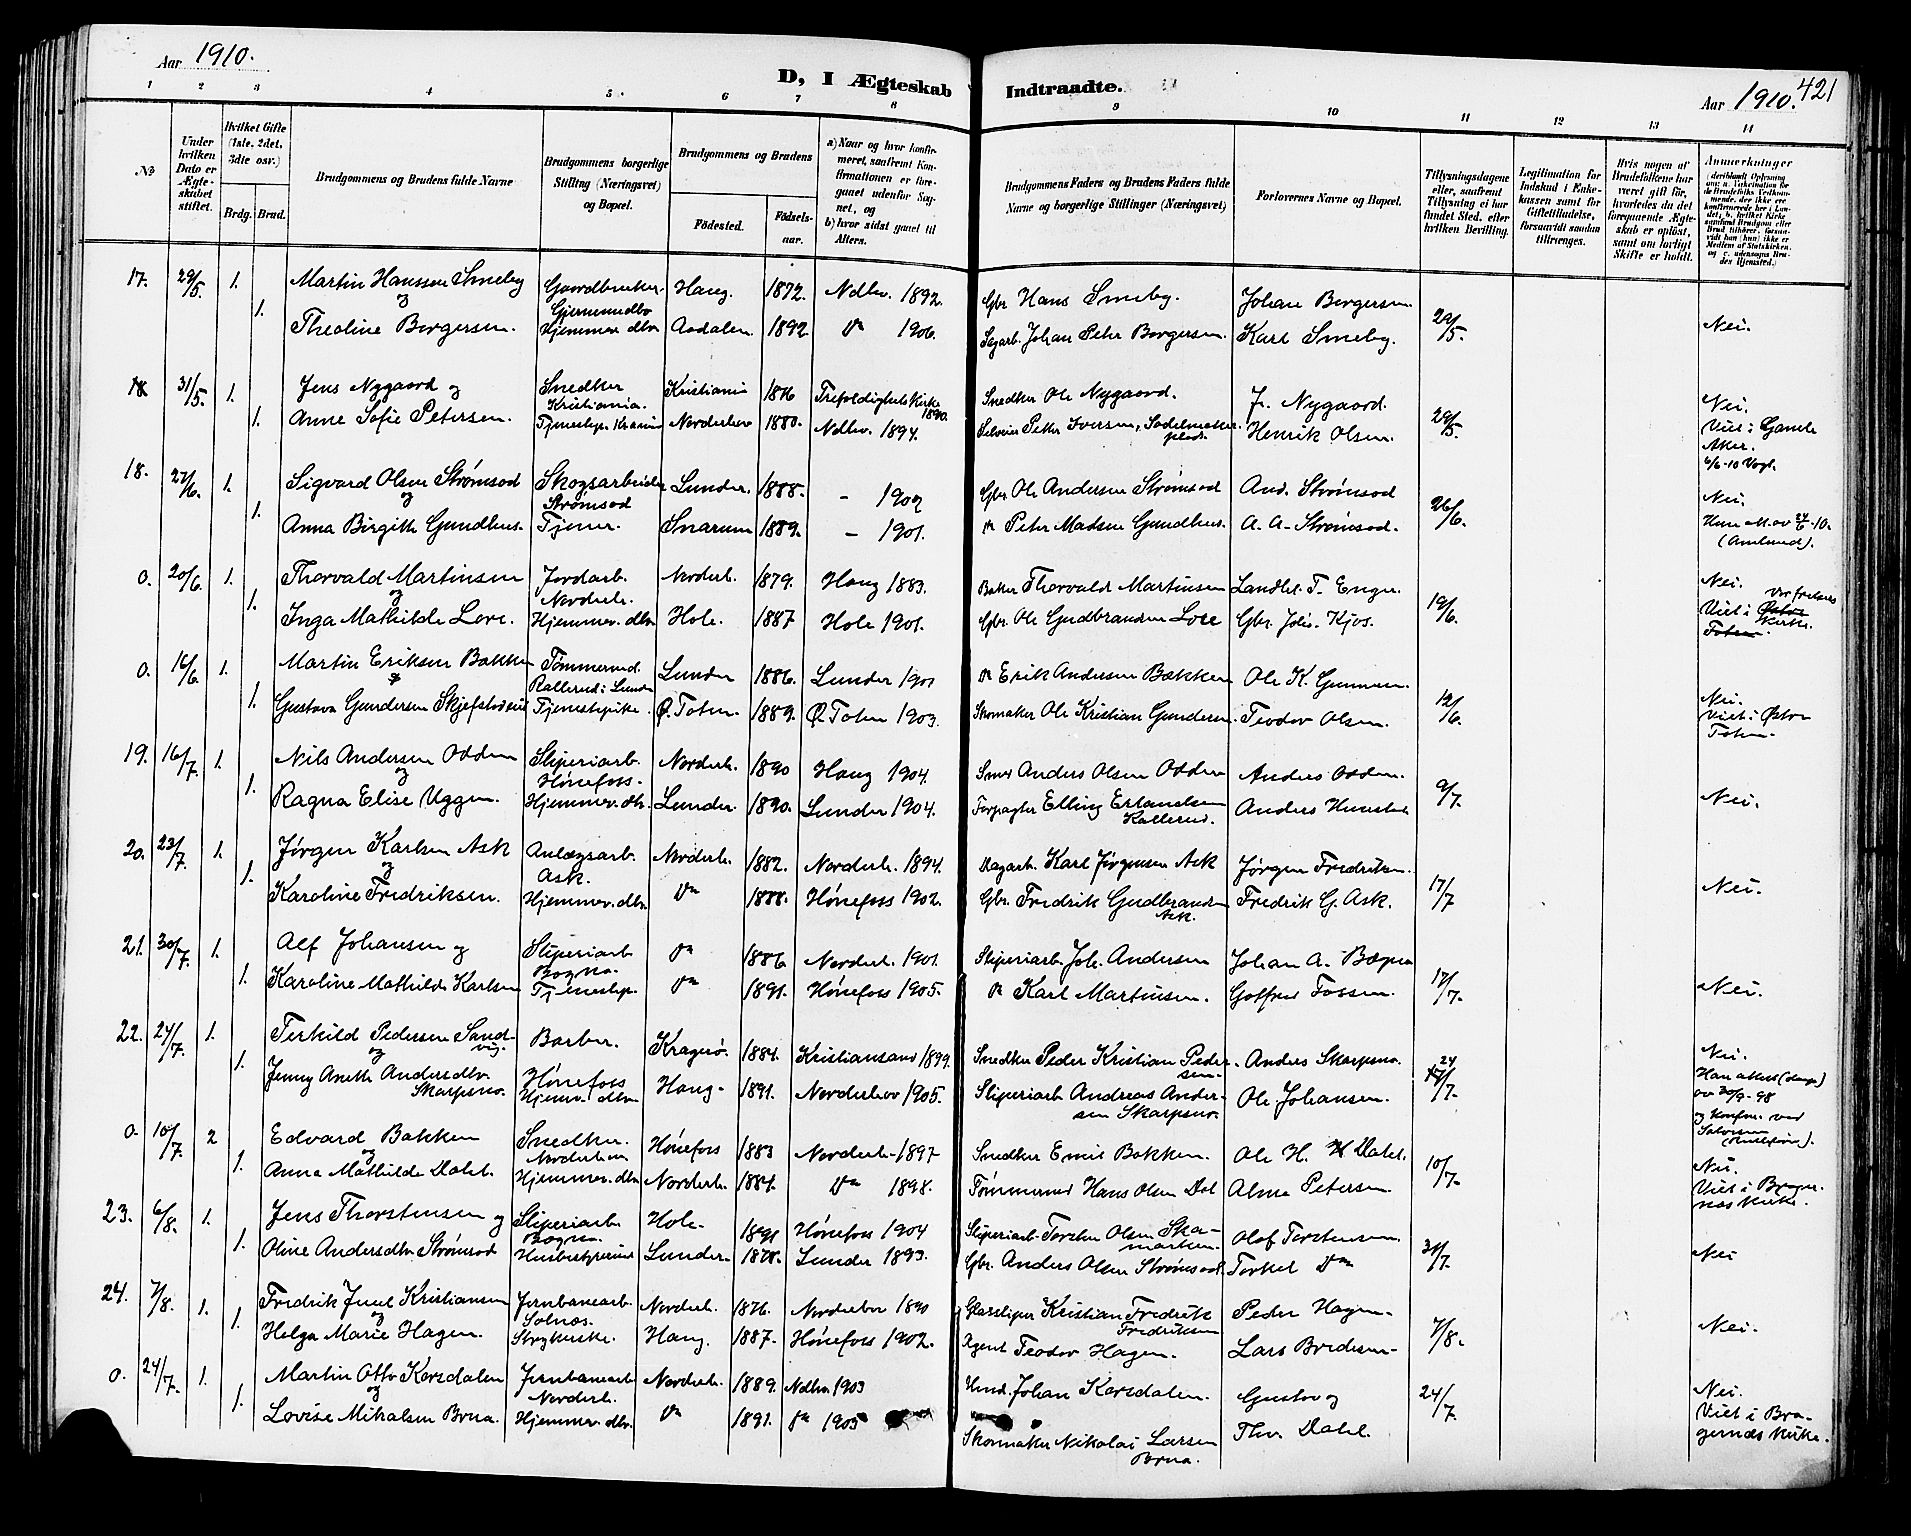 Aar 1910.
D, I Ægteskab Indtraadte.
Aar 1910. 421
1 2 3 4 5 6 7 8 9 10 11 12 13 14
No
Under hvilken Dato er Ægteskabet stiftet.
Hvilket Gifte (1ste, 2det, 3die osv.)
Brdg. Brud.
Brudgommens og Brudens fulde Navne
Brudgommens borgerlige Stilling (Næringsvei) og Bopæl.
Brudgommens og Brudens
Fødested. Fødselsaar.
a) Naar og hvor konfirmeret, saafremt Konfirmationen er foregaaet udenfor Sognet, og b) hvor sidst gaaet til Alters.
Brudgommens Faders og Brudens Faders fulde Navne og borgerlige Stillinger (Næringsvei)
Forlovernes Navne og Bopæl.
Tillysningsdagene eller, saafremt Tillysning ei har fundet Sted, efter hvilken Bevilling.
Legitimation for Indskud i Enkekassen samt for Giftetilladelse, forsaavidt saadan tiltrænges.
Hvis nogen af Brudefolkene har været gift før, hvorledes da det foregaaende Ægteskab er opløst, samt om lovligt Skifte er holdt.
Anmærkninger
17. 29/5. 1. Martin Hansson Smeby Gaardbruker Haug. 1872. Ndhv. 1892. Gbr Hans Smeby. Johan Borgersen
og Gjermundbo
1. Theoline Borgersen. Hjemmev. dtr. Aadalen 1892 do 1906. Sagarb. Johan Peter Borgersen. Karl Smeby. 29/5. Nei.
18 31/5. 1. Jens Nygaard og Snedker Kristiania 1876 Trefoldigheds Kirke 1890. Snedker Ole Nygaard. J. Nygaard. Nei.
Kristiania.
1. Anne Sofie Petersen. Norderhov 1880. Ndhv. 1894. Peter Iversen, Henrik Olsen. 29/5. Viet i Gamle Aker. 6/6-10 Vogt.
18. 27/6. 1. Sigvard Olsen Strømsod Skogsarbeider Lunder. 1888. - 1902 Gbr Ole Andersen Strømsod And. Strømsod Nei
og Strømsod
1. Anna Birgitte Gundhus. Tjener. Snarum 1889. - 1901. Peter Madsen Gundhus. A. A. Strømsod. 26/6.
0. 20/6 1. Thorvald Martinsen Jordarb. Norderh. 1879. Haug 1883. Baker Thorvald Martinsen Landh. T. Enger Nei.
og Norderh.
1. Inga Mathilde Lore. Hjemmev. dtr. Hole. 1887 Hole 1901. Gbr. Ole Gudbrandsen Lore Gbr. Johs. Kjos. 19/6. Viet i Kirke.
0. 16/6 1. Martin Eriksen Bakken Tømmermd. Lunder 1886. Lunder 1901 Erik Andersen Bakken Ole K. Gunnersen.
Rallerud i Lunder
1. Gustava Gundersen Tjenestepike. Ø. Toten. 1889. Ø. Toten 1903. Skomaker Ole Kristian Gundersen. Teodor Olsen. 12/6. Nei. Viet i Østre Toten.
19. 16/7. 1. Nils Andersen Odden Sliperiarb. Norderh. 1890 Haug 1904. Smed Anders Olsen Odden Anders Odden.
og Hønefoss.
1. Ragna Elise Uggen. Hjemmev. dtr. Lunder. 1890. Lunder 1904. Forpagter Elling Erlandsen Rallerud. Anders 9/7. Nei.
20. 23/7. 1. Jørgen Karlsen Ask Anlægsarb. Norderh. 1882. Norderh. 1894. Dagarb. Karl Jørgensen Ask Jørgen Fredriksen.
og Ask.
1. Karoline Fredriksen. Hjemmev. dtr. do 1888. Hønefoss 1902. Gbr. Fredrik Gudbrandsen Ask. Fredrik G. Ask. 17/7 Nei.
21. 30/7. 1. Alf Johansen og Sliperiarb do 1886 Norderh. 1901. Sliperiarb Joh. Andersen Johan A. Bægna
Bægna.
1. Karoline Mathilde Karlsen Tjenestep. do 1891. Hønefoss 1905. Karl Martinsen. Gotfred Fossen. 17/7. Nei.
22. 24/7. 1. Terkild Pedersen Sandvig. Barber. Kragerø. 1884. Kristiansand 1899. Snedker Peder Kristian Pedersen Anders Skarpsno. Nei.
og Hønefoss
1. Jenny Anette Andersdtr. Skarpsno. Hjemv. dtr. Haug. 1891. Norderhov 1905. Sliperiarb Andreas Andersen Skarpsno. Ole Johansen. 24/7.
0. 10/7. 2 Edvard Bakken Snedker. Hønefoss 1883 Norderh. 1897 Snedker Emil Bakken. Ole H. Dalel.
og Norderhov
1. Anna Mathilde Dalel. Hjemmev. dtr. Norderh. 1884. do 1898. Tømmermd Hans Olsen Dal Alma Petersen 10/7. Nei. Viet i Bragernes Kirke.
23. 6/8. 1. Jens Thorstensen og Sliperiarb Hole. 1891 Hønefoss 1904 Sliperiarb Torsten Olsen Skamarken Olaf Torstensen
Bægna.
1. Oline Andersdtr. Strømsod Husbestyrerinde Lunder. 1878. Lunder 1893. Gbr. Anders Olsen Strømsod. Torkel do 31/7. Nei
24. 7/8. 1. Fredrik Juul Kristiansen Jernbanearb. Norderh. 1876. Norderhov 1890 Glassliper Kristian Fredrik Fredriksen Peder Hagen.
og Solnæs.
1. Helga Marie Hagen. Strykerske. Haug. 1887. Hønefoss 1902. Agent Teodor Hagen. Lars Bredesen 7/8. Nei.
0. 24/7. 1. Martin Otto Korsdalen Jernbanearb Norderh. 1889. Ndhv. 1903 Johan Korsdalen. Gustav og Nei.
og Norderh.
1. Lovise Mikalsen Brua. Hjemmev. dtr. do 1891. do 1905 Skomaker Nikolai Larsen Brua. Thv. Dalel. 24/7. Viet i Bragernæs Kirke.